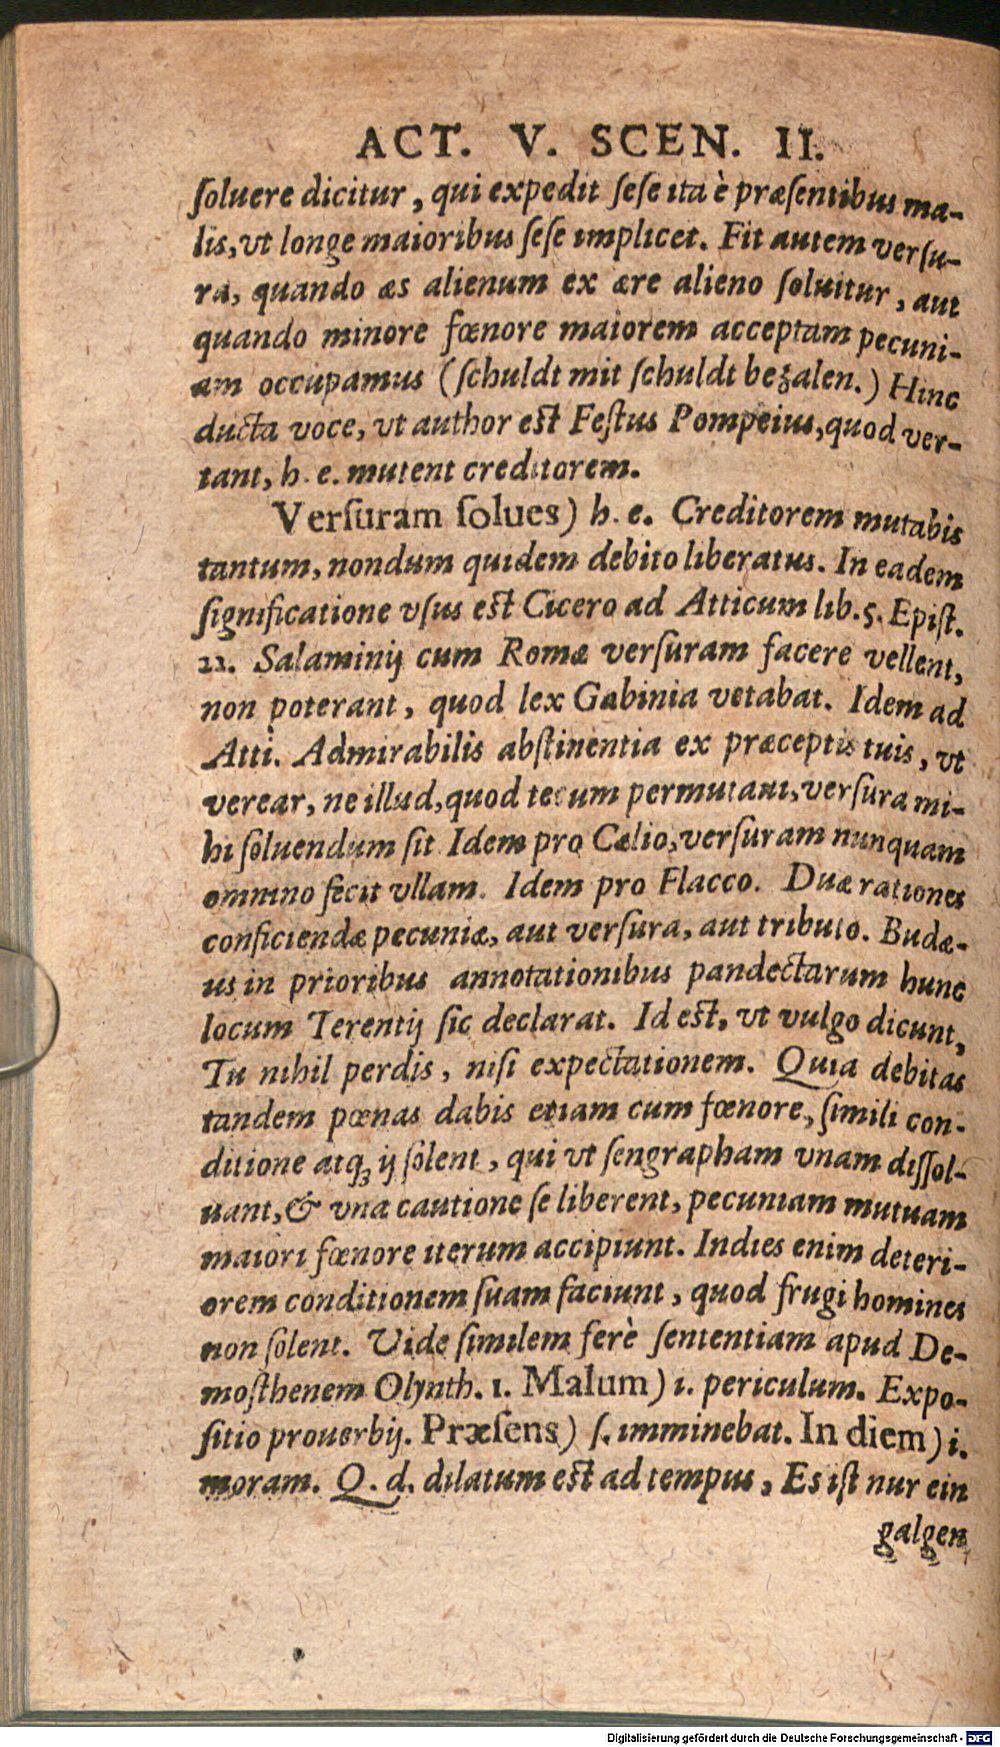 ACT. V. SCEN. II.
ſoluere dicitur, qui expedit ſeſe ita è præſentibus ma-
lis, vt longe maioribus ſeſe implicet. Fit autem verſu-
ra, quando æs alienum ex ære alieno ſoluitur, aut
quando minore fœnore maiorem acceptam pecuni-
am occupamus (ſchuldt mit ſchuldt bezalen.) Hinc
ducta voce, vt author est Feſtus Pompeius, quod ver-
tant, h. e. mutent creditorem.
Verſuram ſolues) h. e. Creditorem mutabis
tantum, nondum quidem debito liberatus. In eadem
ſignificatione vſus est Cicero ad Atticum lib. 5. Epiſt.
22. Salaminij cum Romæ verſuram facere vellent,
non poterant, quod lex Gabinia vetabat. Idem ad
Atti. Admirabilis abſtinentia ex præceptis tuis, vt
verear, ne illud, quod tecum permutaui, verſura mi-
hi ſoluendum ſit Idem pro Cælio, verſuram nunquam
omnino fecit vllam. Idem pro Flacco. Duæ rationes
conficiendæ pecuniæ, aut verſura, aut tributo. Budæ-
us in prioribus annotationibus pandectarum hunc
locum Terentij ſic declarat. Id est, vt vulgo dicunt,
Tu nihil perdis, niſi expectationem. Quia debitas
tandem pœnas dabis etiam cum fœnore, ſimili con-
ditione atq; ij ſolent, qui vt ſengrapham vnam diſſol-
uant, & vna cautione ſe liberent, pecuniam mutuam
maiori fœnore iterum accipiunt. Indies enim deteri-
orem conditionem ſuam faciunt, quod frugi homines
non ſolent. Vide ſimilem ferè ſententiam apud De-
moſthenem Olynth. 1. Malum) i. periculum. Expo-
ſitio prouerbij. Præſens) ſ. imminebat. In diem) i.
moram. Q. d. dilatum est ad tempus, Es iſt nur ein
galgen
Digitalisierung gefördert durch die Deutsche Forschungsgemeinschaft - DFG